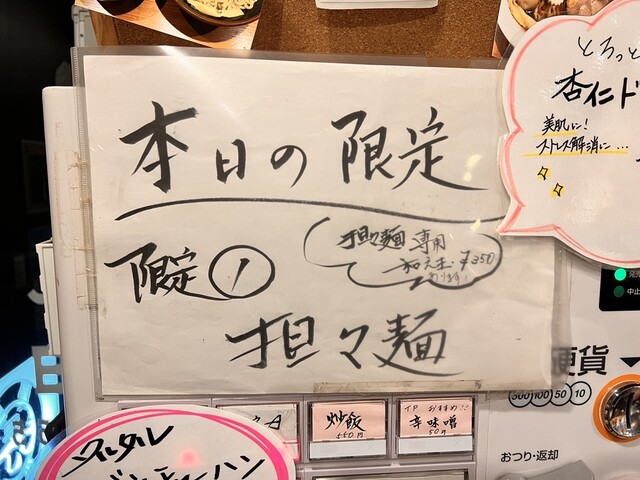 本日の限定
限定①
担々麺専用
和え玉 ¥350
あります!
担々麺
とろっと
杏仁ド
美肌に!
ストレス解消に…
炒飯
550円
TP おすすめ!!
辛味噌
50円
硬貨
500 100 50 10
おつり・返却
中止